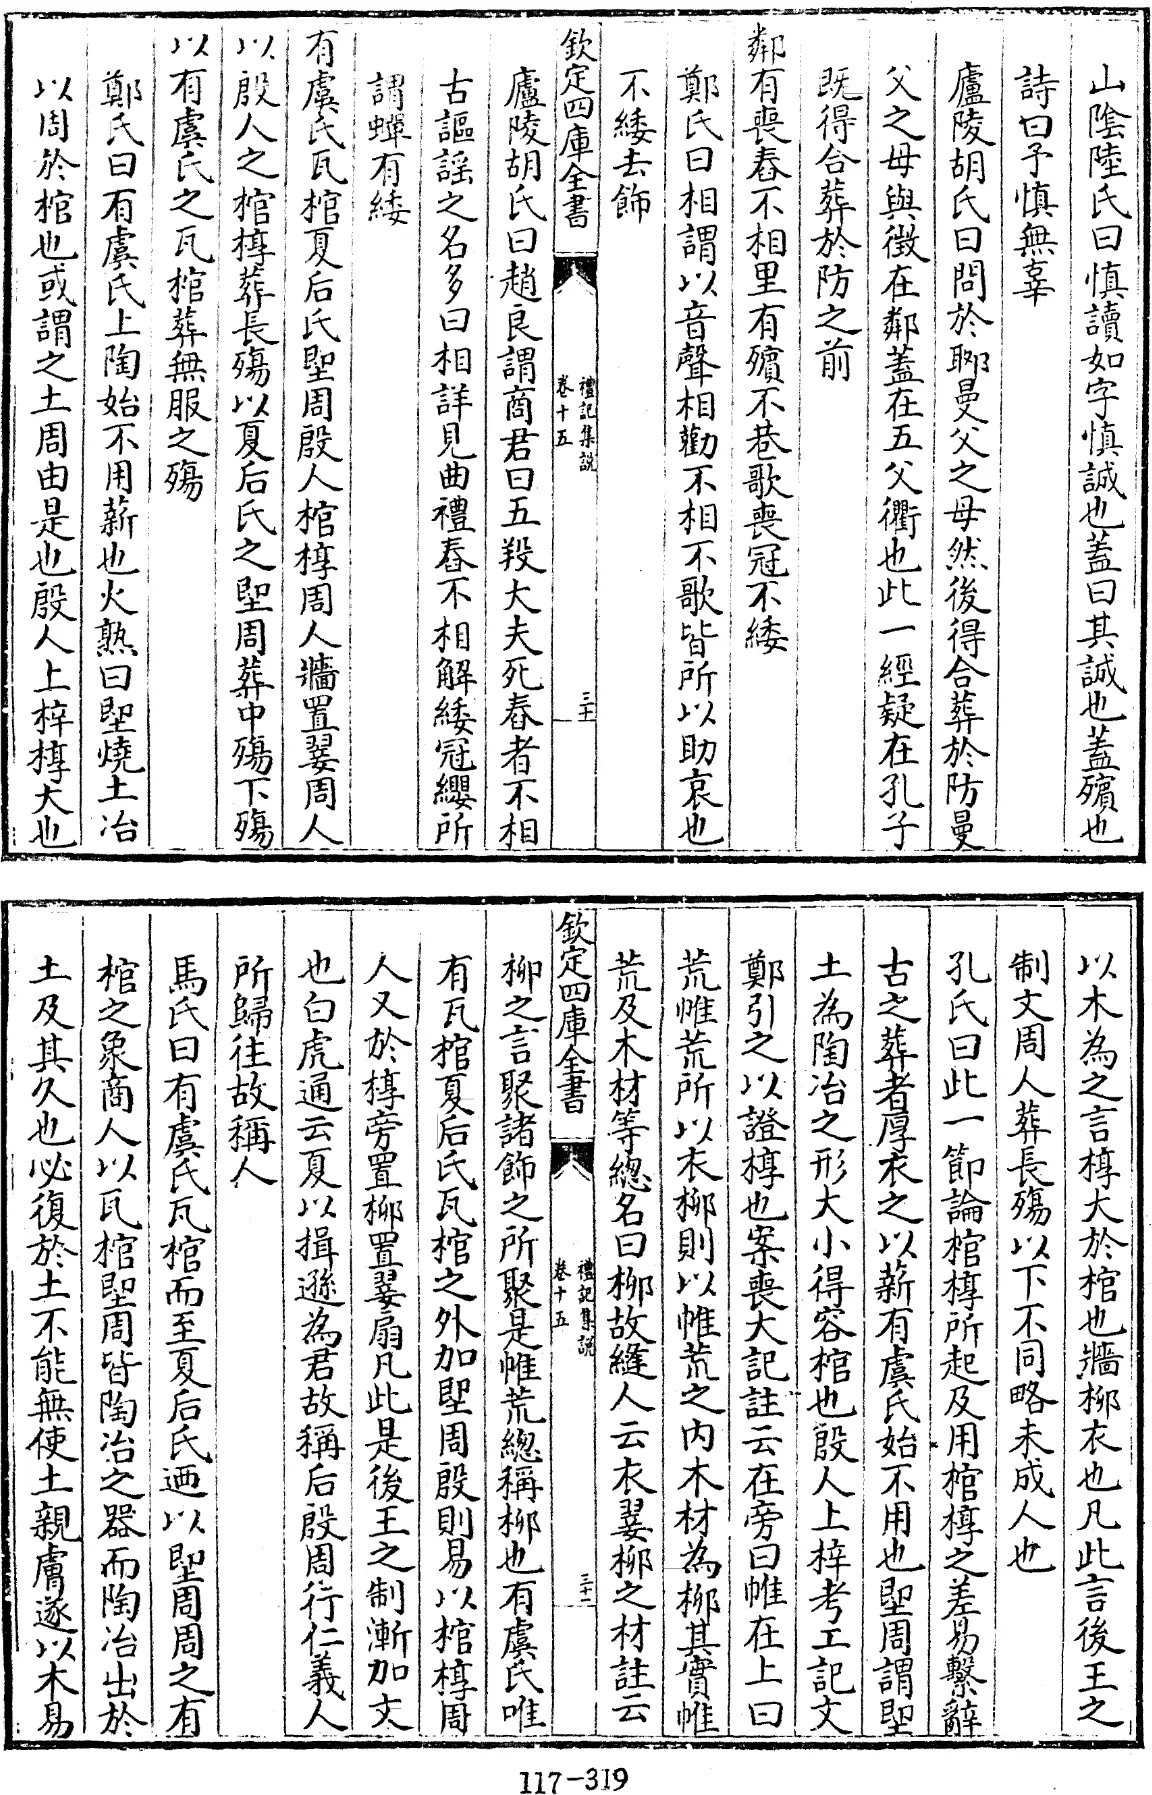 山陰陸氏曰慎讀如字慎誠也蓋曰其誠也蓋殯也
詩曰予慎無辜
廬陵胡氏曰問於郰曼父之母然後得合葬於防曼
父之母與徴在鄰蓋在五父衢也此一經疑在孔子
既得合葬於防之前
鄰有喪舂不相里有殯不巷歌喪冠不緌
鄭氏曰相謂以音聲相勸不相不歌皆所以助哀也
不緌去飾
欽定四庫全書
禮記集說
卷十五
三十
廬陵胡氏曰趙良謂商君曰五羖大夫死舂者不相
古謳謡之名多曰相詳見曲禮舂不相解緌冠纓所
謂蟬有緌
有虞氏瓦棺夏后氏堲周殷人棺椁周人牆置翣周人
以殷人之棺椁葬長殤以夏后氏之堲周葬中殤下殤
以有虞氏之瓦棺葬無服之殤
鄭氏曰有虞氏上陶始不用薪也火熟曰堲燒土冶
以周於棺也或謂之土周由是也殷人上梓椁大也
以木為之言椁大於棺也牆柳衣也凡此言後王之
制文周人葬長殤以下不同略未成人也
孔氏曰此一節論棺椁所起及用棺椁之差易繫辭
古之葬者厚衣之以薪有虞氏始不用也堲周謂堲
土為陶冶之形大小得容棺也殷人上梓考工記文
鄭引之以證椁也案喪大記註云在旁曰帷在上曰
荒帷荒所以衣柳則以帷荒之内木材為柳其實帷
荒及木材等總名曰柳故縫人云衣翣柳之材註云
欽定四庫全書
禮記集說
卷十五
三十一
柳之言聚諸飾之所聚是帷荒總稱柳也有虞氏唯
有瓦棺夏后氏瓦棺之外加堲周殷則易以棺椁周
人又於椁旁置柳置翣扇凡此是後王之制漸加文
也白虎通云夏以揖遜為君故稱后殷周行仁義人
所歸往故稱人
馬氏曰有虞氏瓦棺而至夏后氏迺以堲周周之有
棺之象商人以瓦棺堲周皆陶冶之器而陶冶出於
土及其久也必復於土不能無使土親膚遂以木易
117-319